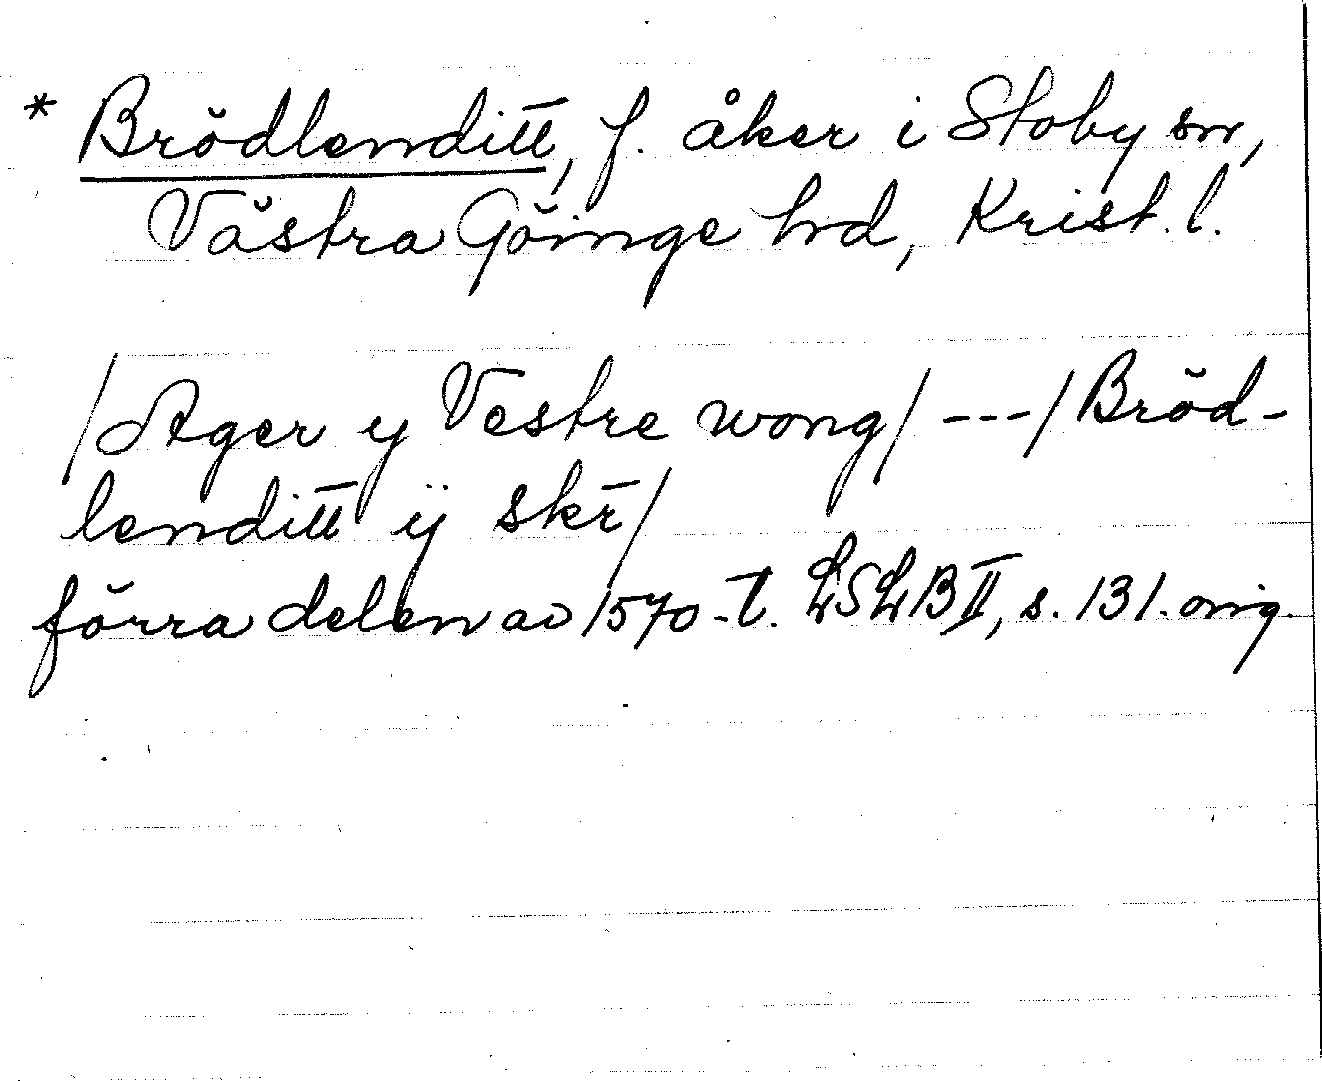 * Brödlenditt, f. åker i Stoby sn,
Västra Göinge hd, Krist. l.
/Ager y Vestre wong/ ---/ Bröd-
lenditt ÿ skr̄/
förra delen av 1570-t. LSLB II, s. 131. orig.